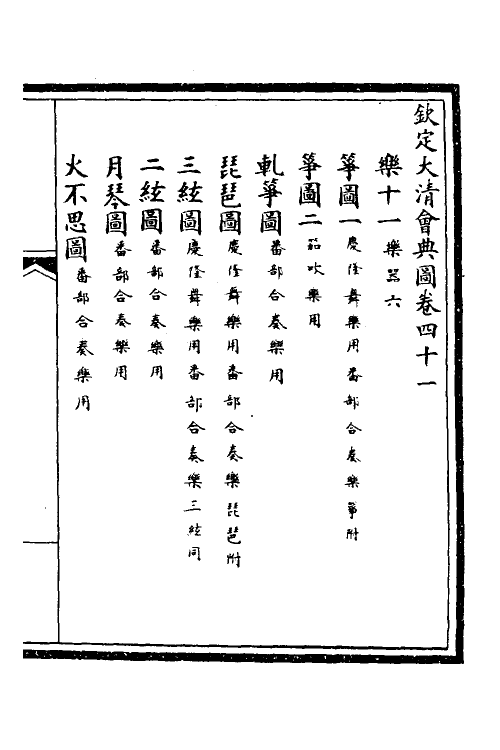 欽定大清會典圖卷四十一
樂十一樂器六
箏圖一慶隆舞樂用番部合奏樂箏附
箏圖二笳吹樂用
軋箏圖番部合奏樂用
琵琶圖慶隆舞樂用番部合奏樂琵琶附
三絃圖慶隆舞樂用番部合奏樂三絃同
二絃圖番部合奏樂用
月琴圖番部合奏樂用
火不思圖番部合奏樂用